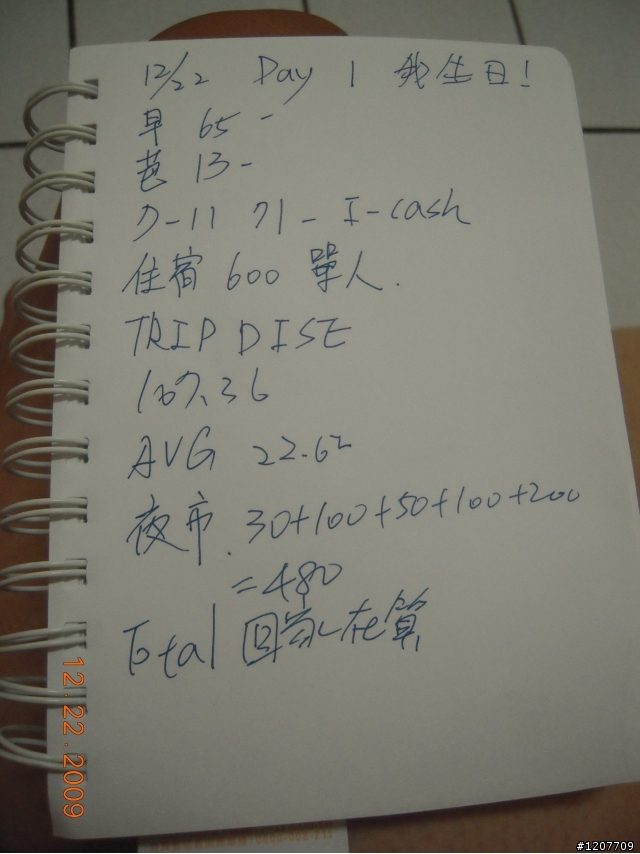 12/22 Day 1 我生日!
早 65-
芭 13-
7-11 71- I-cash
住宿 600 單人.
TRIP DISE
107.36
AVG 22.62
夜市. 30+100+50+100+200
=480
Total 回家在算
12.22.2009
#1207709